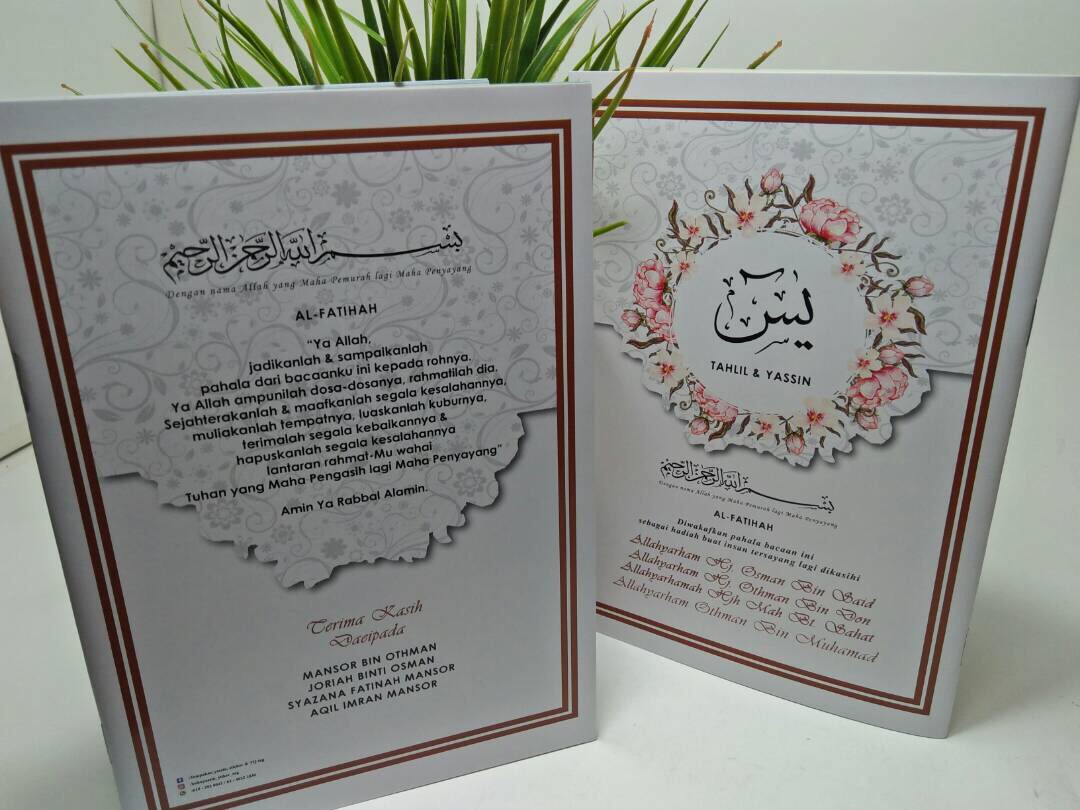 بسم الله الرحمن الرحيم
Dengan nama Allah yang Maha Pemurah lagi Maha Penyayang
AL-FATIHAH
“Ya Allah,
jadikanlah & sampaikanlah
pahala dari bacaanku ini kepada rohnya.
Ya Allah ampunilah dosa-dosanya, rahmatilah dia,
Sejahterakanlah & maafkanlah segala kesalahannya,
muliakanlah tempatnya, luaskanlah kuburnya,
terimalah segala kebaikannya &
hapuskanlah segala kesalahannya
lantaran rahmat-Mu wahai
Tuhan yang Maha Pengasih lagi Maha Penyayang”
Amin Ya Rabbal Alamin.
Terima Kasih
Daeipada
MANSOR BIN OTHMAN
JORIAH BINTI OSMAN
SYAZANA FATINAH MANSOR
AQIL IMRAN MANSOR
يس
TAHLIL & YASSIN
بسم الله الرحمن الرحيم
Dengan nama Allah yang Maha Pemurah lagi Maha Penyayang
AL-FATIHAH
Diwakafkan pahala bacaan ini
sebagai hadiah buat insan tersayang lagi dikasihi
Allahyarham Hj. Osman Bin Said
Allahyarham Hj. Othman Bin Don
Allahyarhamah Hjh Mah Bt. Sahat
Allahyarham Othman Bin Muhamad